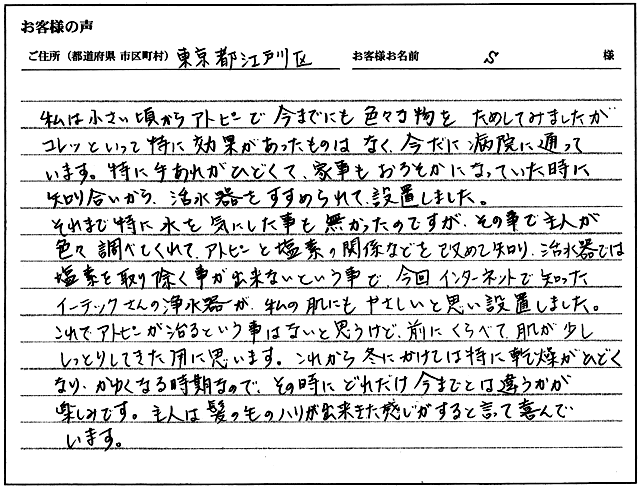 お客様の声
ご住所（都道府県 市区町村） 東京都江戸川区 お客様お名前 S 様
私は小さい頃からアトピーで今までにも色々な物をためしてみましたが
コレッといって特に効果があったものはなく、今だに病院に通って
います。特に手あれがひどくて、家事もおろそかになっていた時に
知り合いから、活水器をすすめられて、設置しました。
それまで特に水を気にした事も無かったのですが、その事で主人が
色々調べてくれて、アトピーと塩素の関係などを改めて知り、活水器では
塩素を取り除く事が出来ないという事で、今回インターネットで知った
イーテックさんの浄水器が、私の肌にもやさしいと思い設置しました。
これでアトピーが治るという事はないと思うけど、前にくらべて肌が少し
しっとりしてきた用に思います。これから冬にかけては特に乾燥がひどく
なり、かゆくなる時期なので、その時にどれだけ今までとは違うかが
楽しみです。主人は髪の毛のハリが出来きた感じがすると言って喜んで
います。